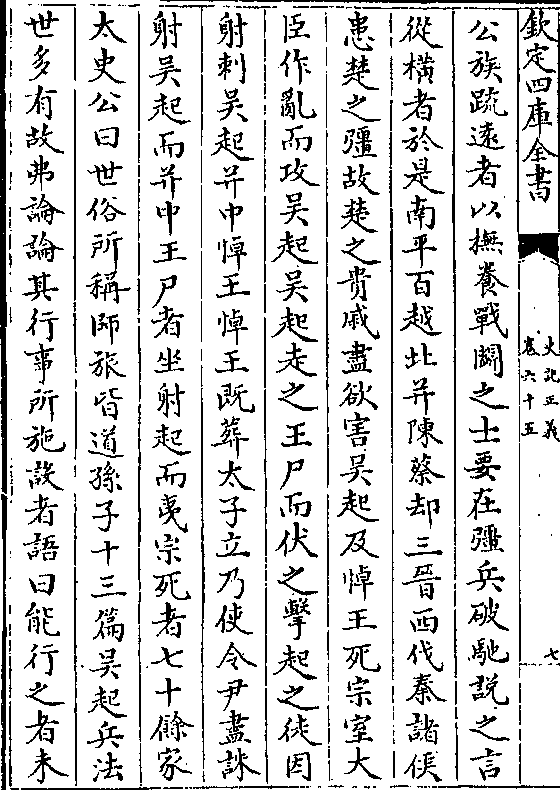 欽定四庫全書
史記正義
卷六十五
七
公族䟽遠者以撫養戰鬬之士要在彊兵破馳説之言
從横者於是南平百越北并陳蔡却三晉西伐秦諸侯
患楚之彊故楚之貴戚盡欲害吳起及悼王死宗室大
臣作亂而攻吳起吳起走之王尸而伏之擊起之徒因
射刺吳起并中悼王悼王既葬太子立乃使令尹盡誅
射吳起而并中王尸者坐射起而夷宗死者七十餘家
太史公曰世俗所稱師旅皆道孫子十三篇吳起兵法
世多有故弗論論其行事所施設者語曰能行之者未